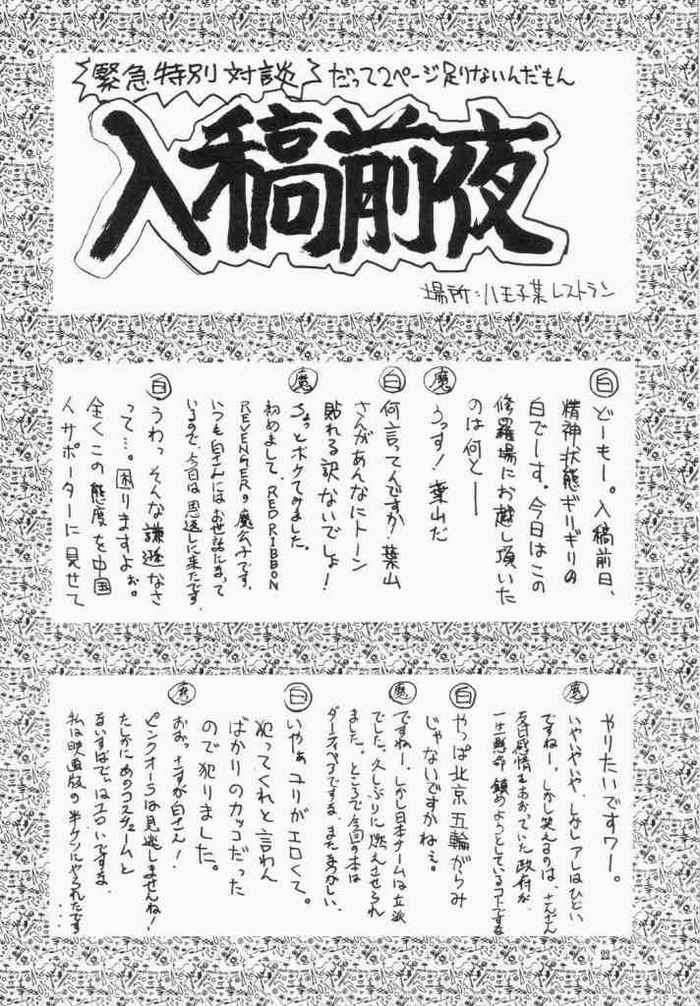 緊急特別対談 だって2ページ足りないんだもん
入稿前夜
場所：八王子某レストラン
白 どーもー。入稿前日、
精神状態ギリギリの
白でーす。今日はこの
修羅場にお越し頂いた
のは何と──
魔 うっす！葉山だ
白 何言ってんですか！葉山
さんがあんなにトーン
貼れる訳ないでしょ！
魔 ちょっとボケてみました。
初めまして、RED RIBBON
REVENGERの魔公子です。
いつも白さんにはお世話になって
いるので、今日は恩返しに来たです。
白 うわっ そんな謙遜なさ
って…。困りますよぉ。
全くこの態度を中国
人サポーターに見せて
やりたいですワー。
魔 いやいやいや、しかしアレはひどい
ですねー。しかし笑えるのは、さんざん
反日感情をあおっていた政府が
一生懸命 鎮めようとしているコトですな
白 やっぱ北京五輪がらみ
じゃないですかねぇ。
魔 ですねー。しかし日本チームは立派
でした。久しぶりに燃えさせられ
ました。ところで今回の本は
ダーティペアですな。またなつかしい。
白 いやぁユリがエロくて。
犯ってくれと言わん
ばかりのカッコだった
ので犯りました。
魔 おおっ さすが白さん！
ピンクオーラは見逃しませんね！
たしかにあのコスチュームと
私は映画版の
22